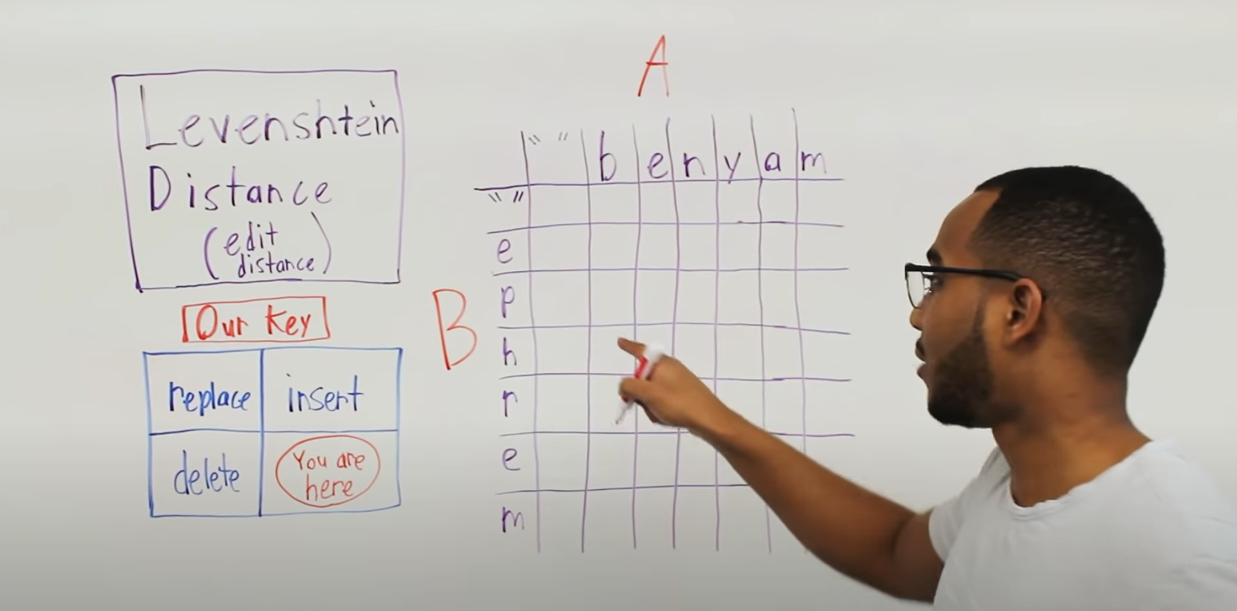 Levenshtein
Distance
(edit
distance)
Our Key
replace insert
delete You are
here
A
" " b e n y a m
B
" "
e
p
h
r
e
m